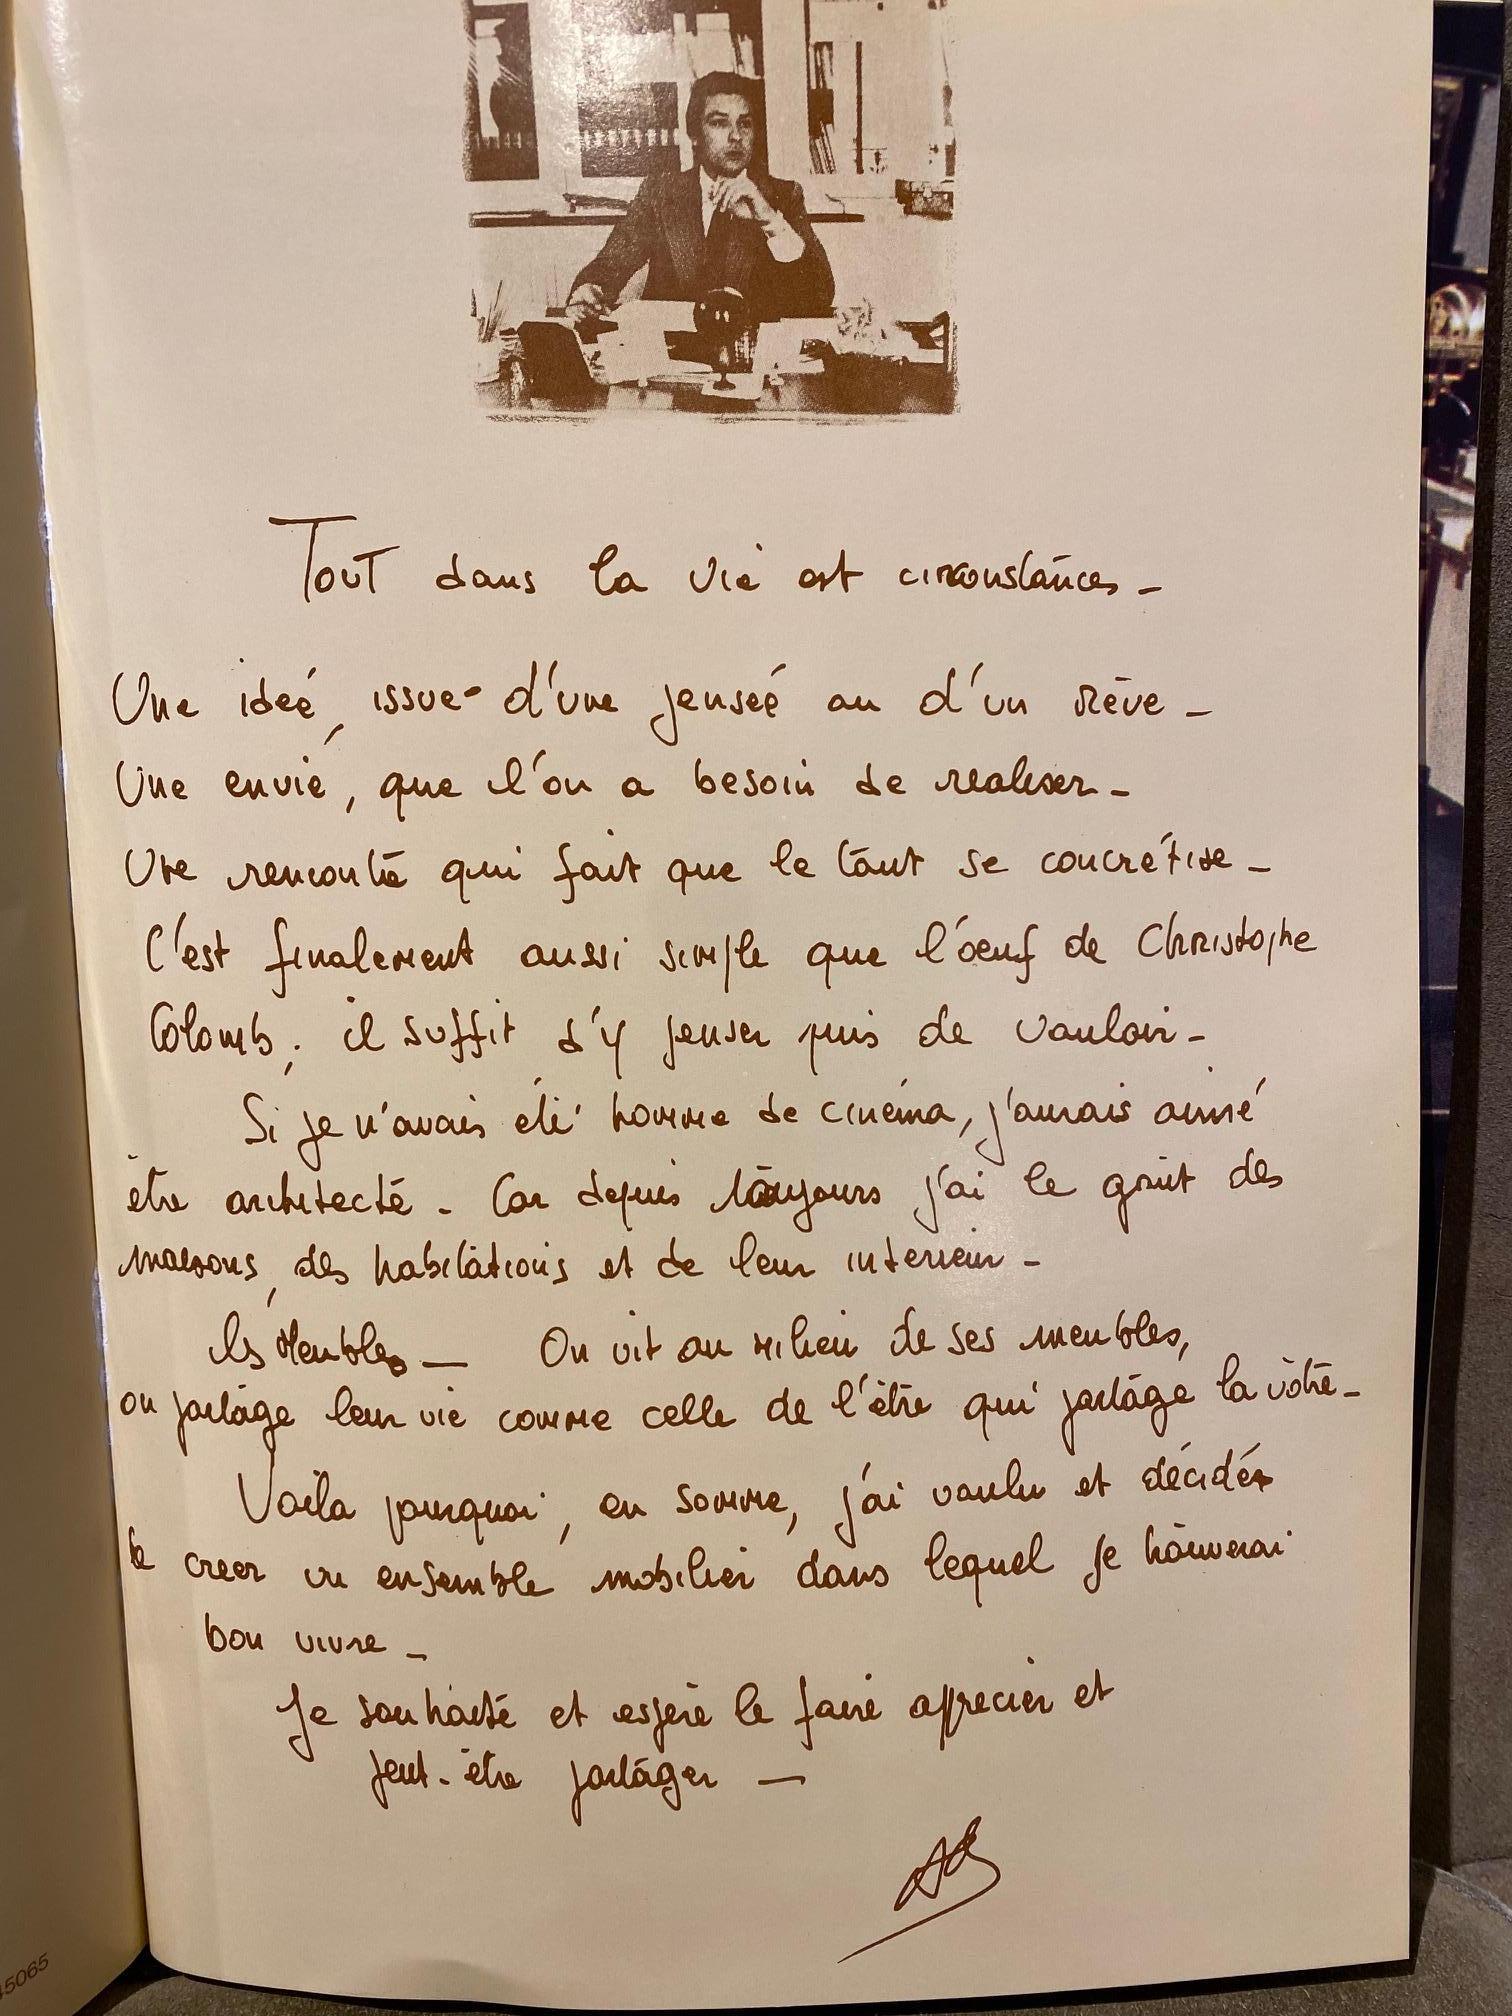 Tout dans la vie est circonstances_
Une idée, issue d'une pensée ou d'un rêve_
Une envie, que l'on a besoin de réaliser_
Une rencontre qui fait que le tout se concrétise_
C'est finalement aussi simple que l'oeuf de Christophe
Colomb ; il suffit d'y penser puis de vouloir_
Si je n'avais été homme de cinéma, j'aurais aimé
être architecte. Car depuis toujours j'ai le goût des
maisons, des habitations et de leur intérieur_
les Meubles_ On vit au milieu de ses meubles,
on partage leur vie comme celle de l'être qui partage la vôtre_
Voila pourquoi, en somme, j'ai voulu et décidé
de créer un ensemble mobilier dans lequel je trouverai
bon vivre_
Je souhaite et espère le faire apprécier et
peut-être partager_
AD
45065